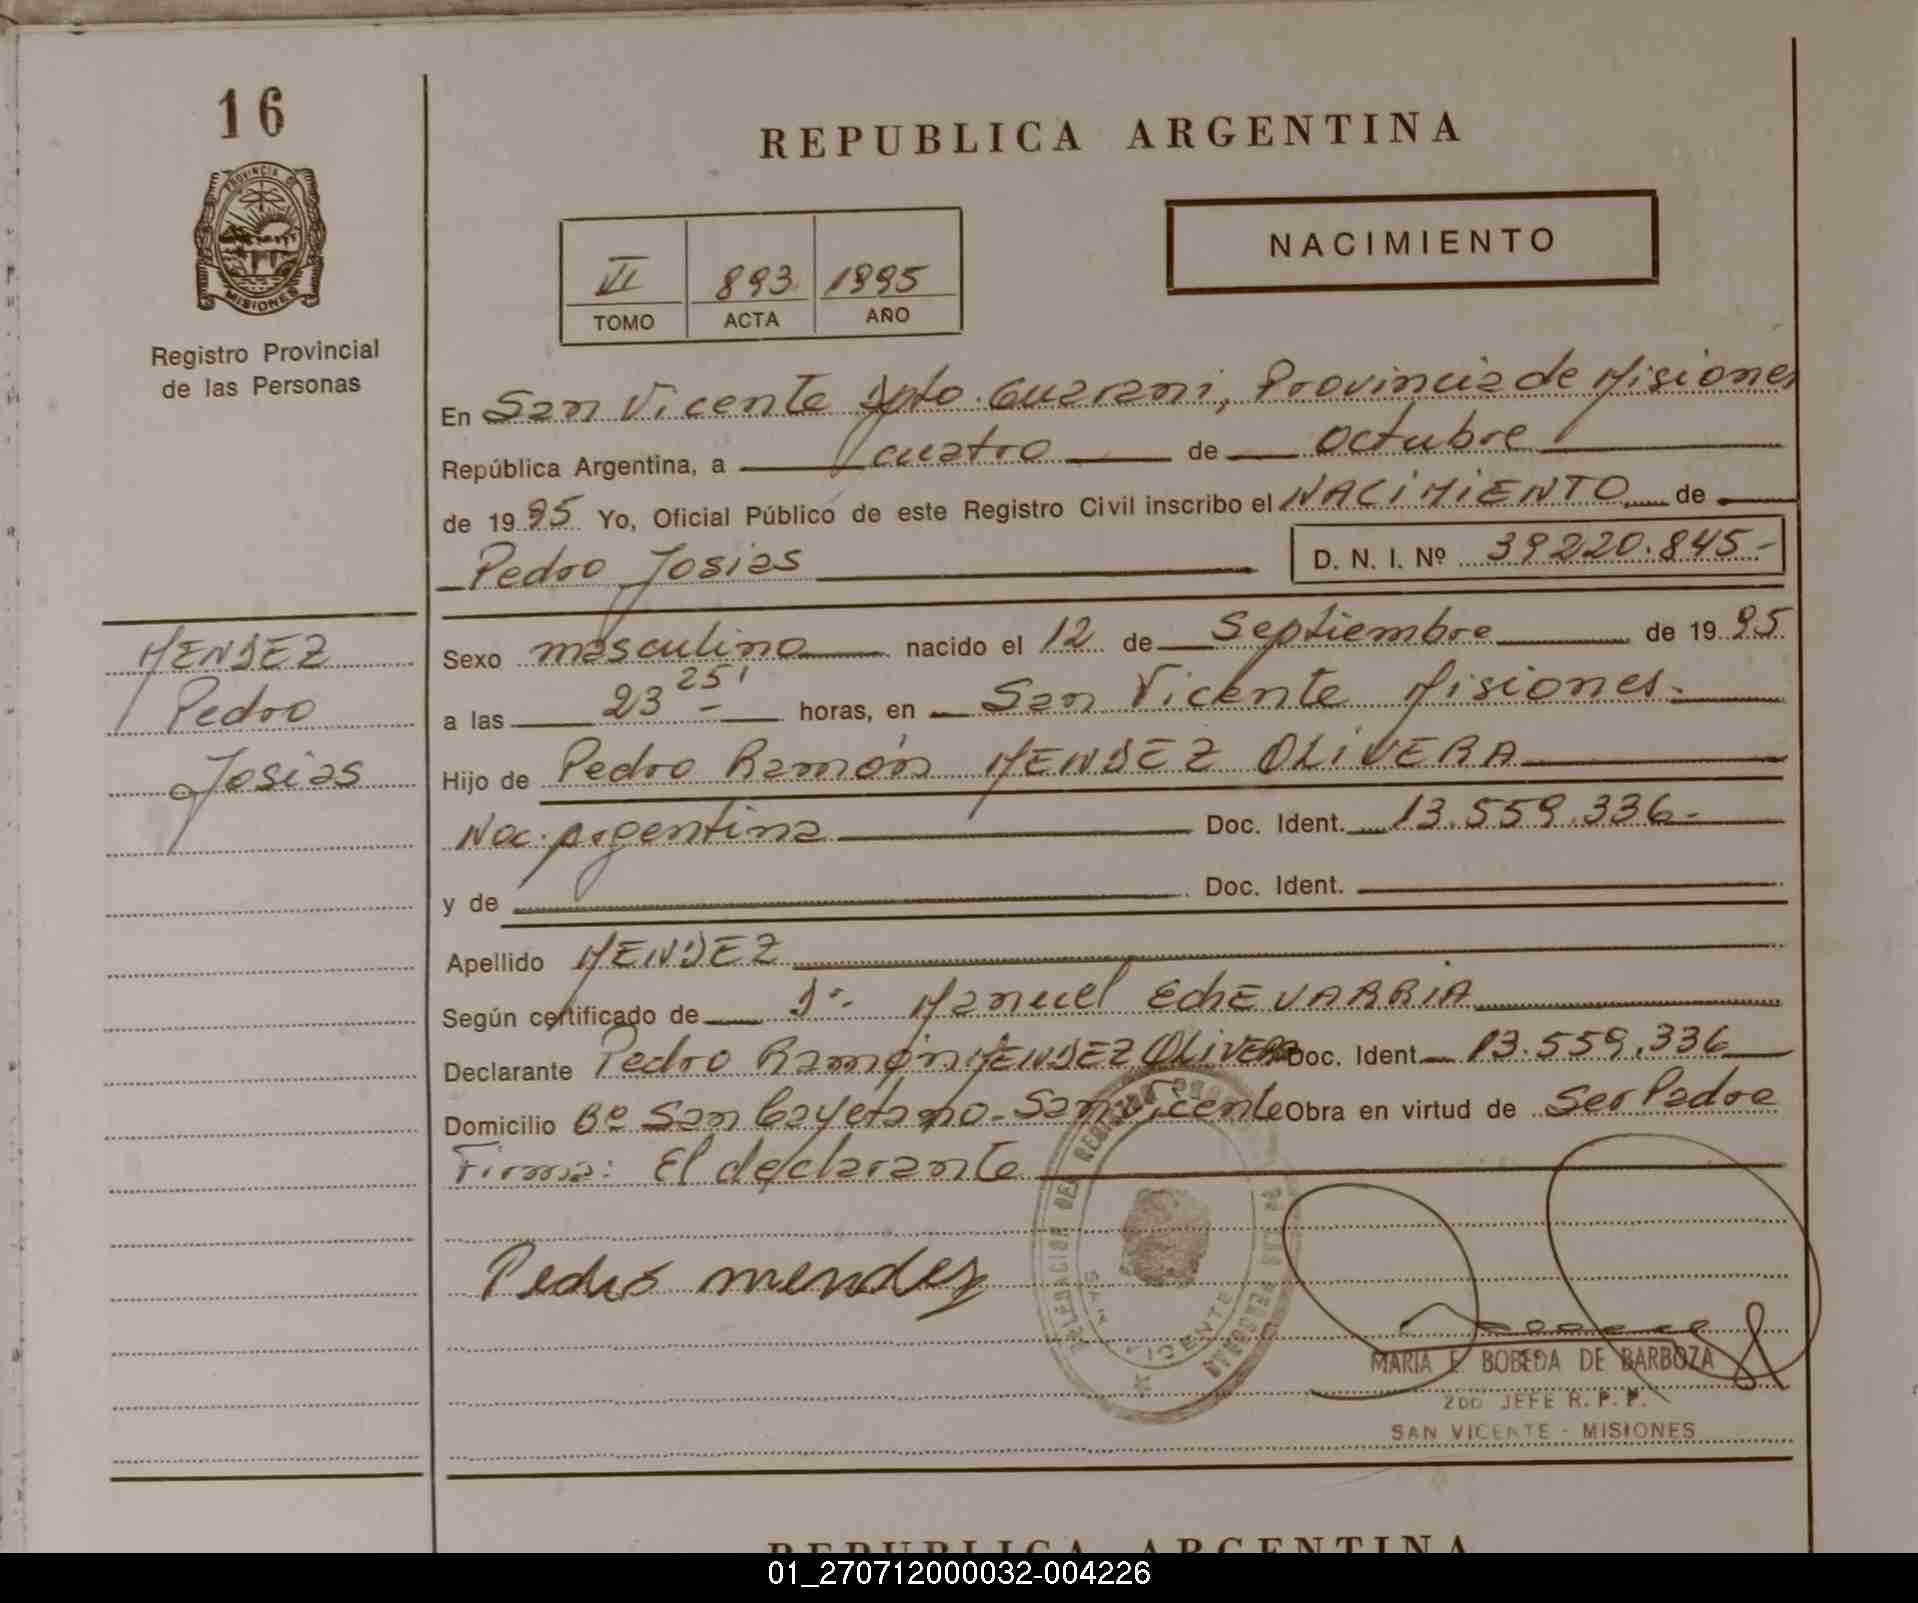 16
PROVINCIA DE
MISIONES
Registro Provincial
de las Personas
REPUBLICA ARGENTINA
NACIMIENTO
VI 893 1995
TOMO ACTA AÑO
En San Vicente Dpto. Guarani, Provincia de Misiones
República Argentina, a cuatro de octubre
de 1995 Yo, Oficial Público de este Registro Civil inscribo el NACIMIENTO de
Pedro Josias D. N. I. Nº 39220.845-
MENDEZ
Pedro
Josias
Sexo masculino nacido el 12 de Septiembre de 1995
a las 23 25' horas, en San Vicente Misiones.
Hijo de Pedro Ramón MENDEZ OLIVERA
Nac. Argentina Doc. Ident. 13.559.336-
y de Doc. Ident.
Apellido MENDEZ
Según certificado de Dr. Manuel EchEVARRIA
Declarante Pedro Ramón MENDEZ OLIVERA Doc. Ident. 13.559.336
Domicilio Bº San Cayetano - San Vicente Obra en virtud de Ser Padre
Firma: El declarante
Pedro mendez
DELEGACION DEL REGISTRO PROVINCIAL DE LAS PERSONAS
SAN VICENTE
MARIA E. BOBEDA DE BARBOZA
2DO JEFE R. P. P.
SAN VICENTE - MISIONES
REPUBLICA ARGENTINA
01_270712000032-004226